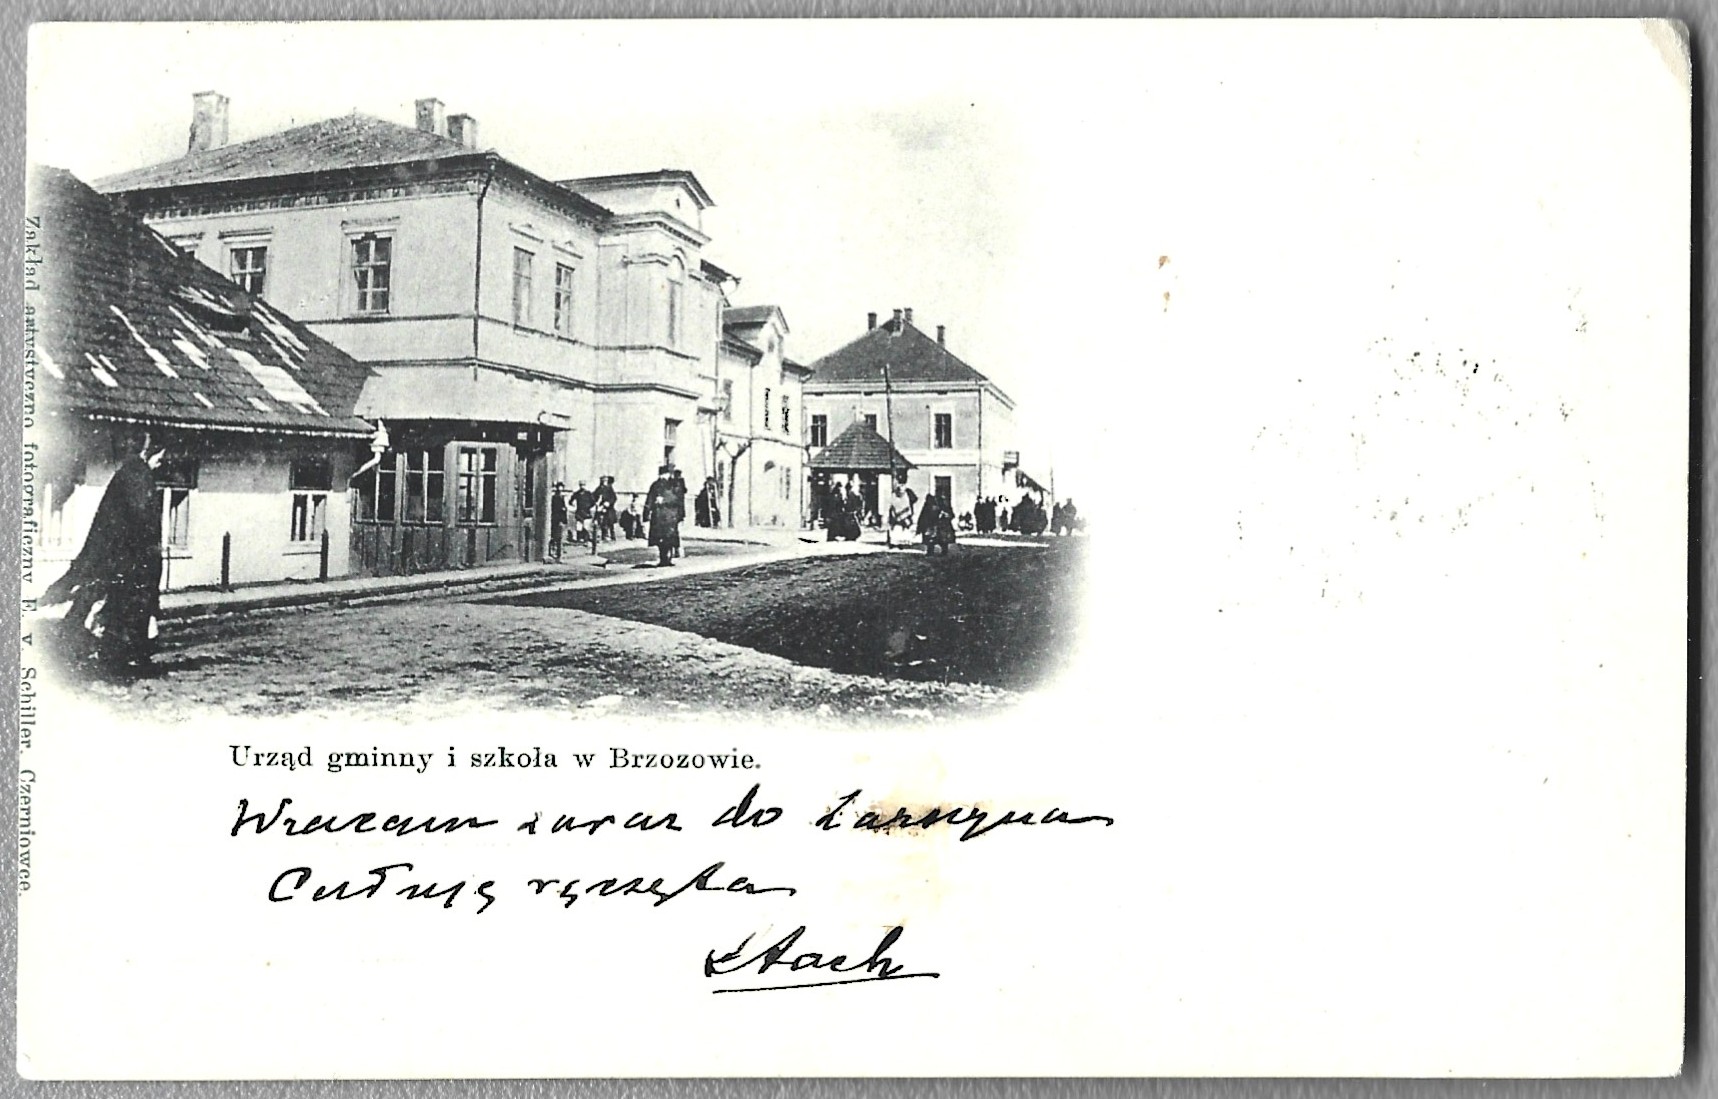 Zakład artystyczno fotograficzny E. v. Schiller, Czerniowce.
Urząd gminny i szkoła w Brzozowie.
Wracam zaraz do Zarszyna
Całuję rączęta
Stach